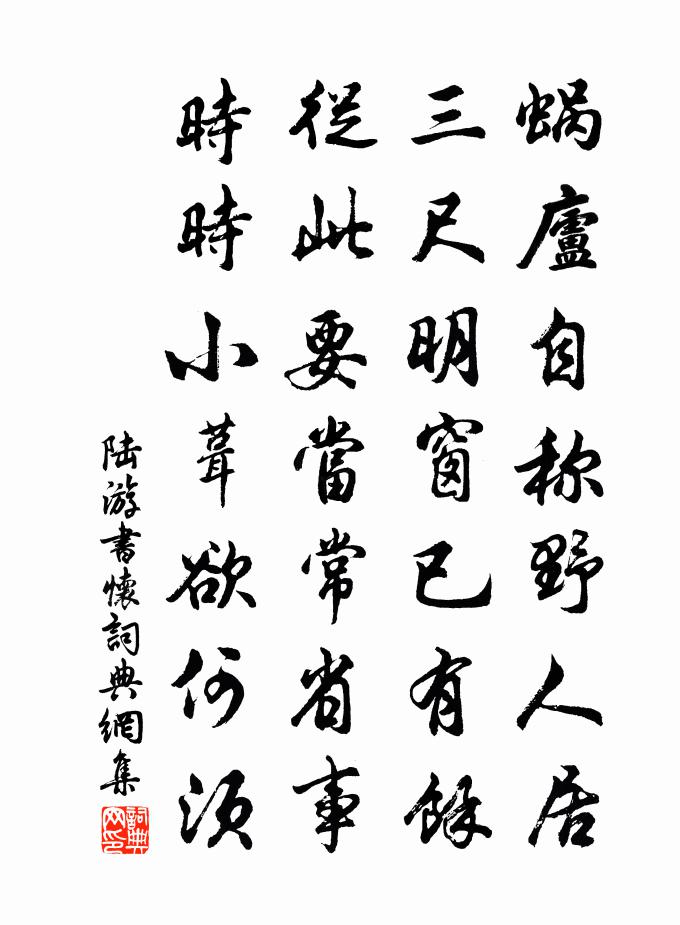 蝸廬自称野人居
三尺明窗已有餘
從此要當常省事
時時小葺欲何須
陆游書懷詞典網集
詞典网印